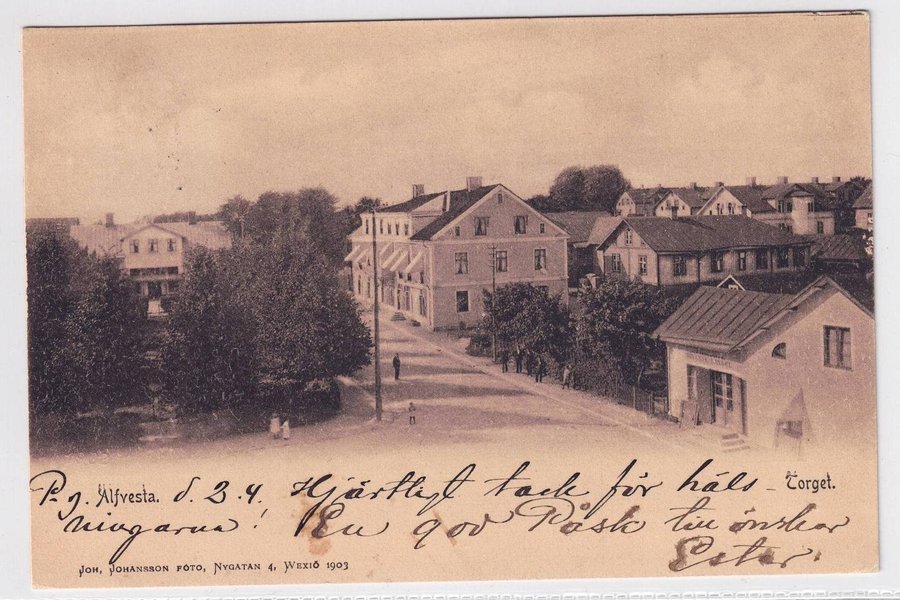 P.g. Alfvesta. d. 2.4. Hjärtligt tack för häls- Torget.
ningarna! En god Påsk tillönskar
Ester.
JOH, JOHANSSON FOTO, NYGATAN 4, WEXIÖ 1903